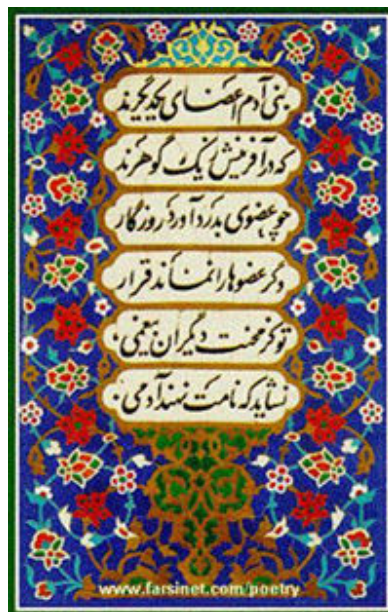 بنی آدم اعضای یکدیگرند
که در آفرینش ز یک گوهرند
چو عضوی بدرد آورد روزگار
دگر عضوها را نماند قرار
تو کز محنت دیگران بیغمی
نشاید که نامت نهند آدمی
www.farsinet.com/poetry